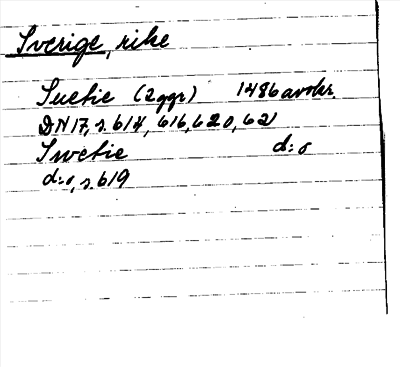 Sverige, rike
Suetie (2ggr) 1486 avskr.
DN 17, s. 614, 616, 620, 621
Swetie d:o
d:o, s. 619